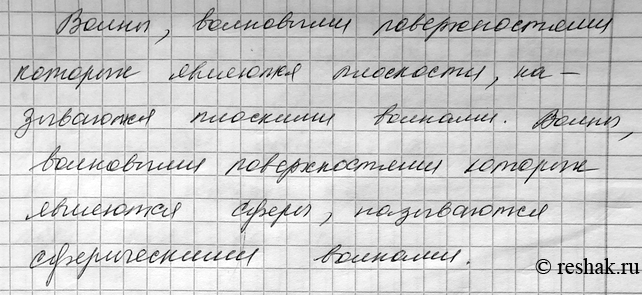 Волны, волновыми поверхностями
которых являются плоскости, на-
зываются плоскими волнами. Волны,
волновыми поверхностями которых
являются сферы, называются
сферическими волнами.
© reshak.ru